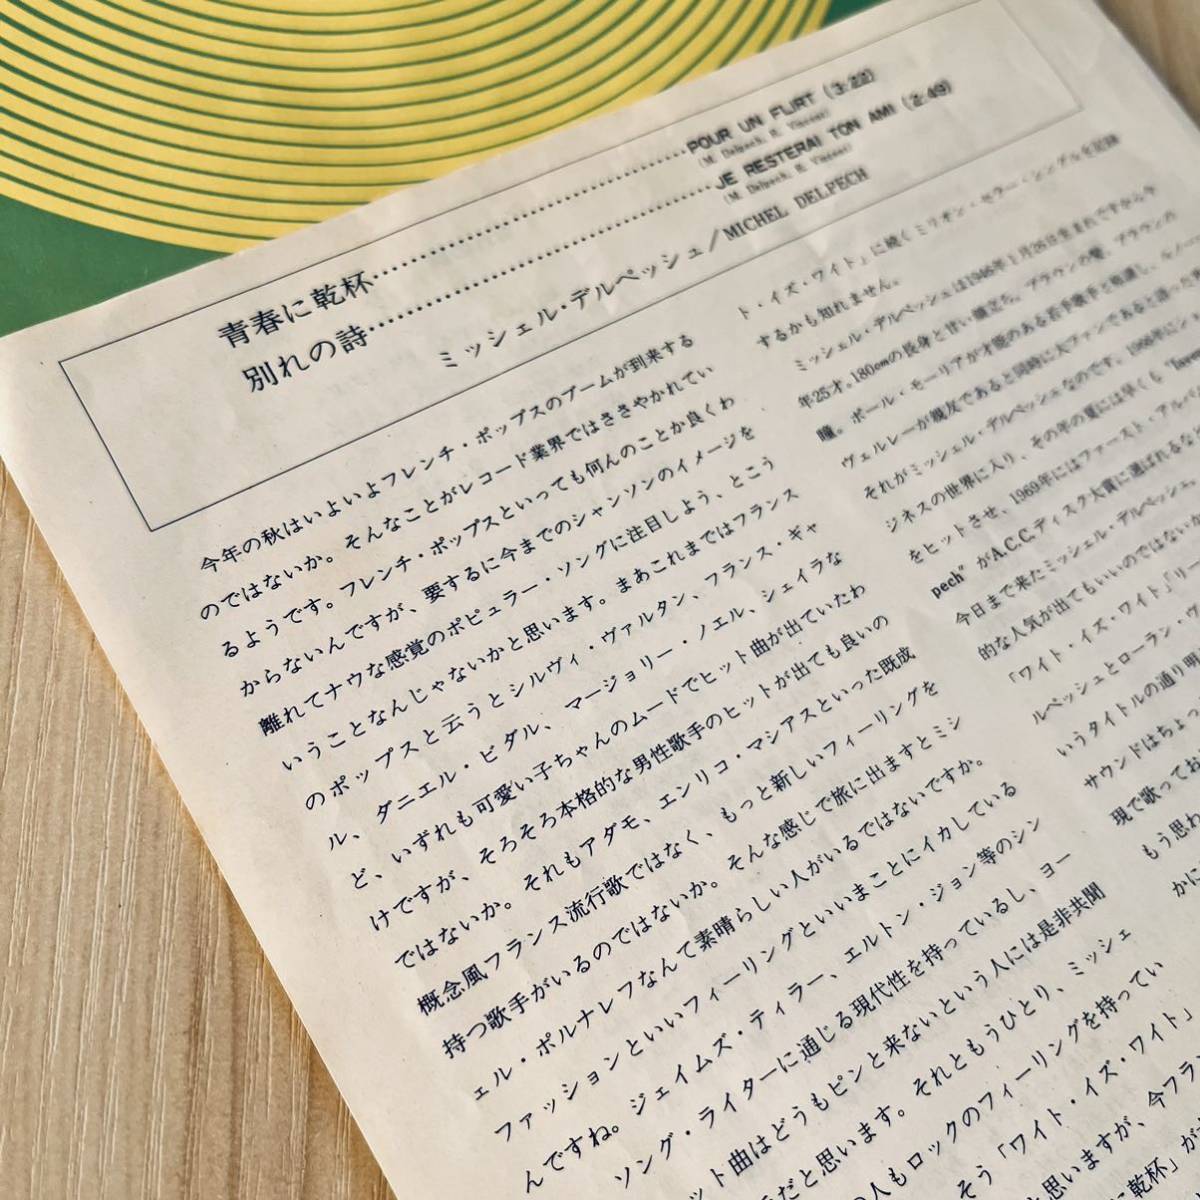 青春に乾杯……………………POUR UN FLIRT (3:22)
(M. Delpech, R. Vincent)
別れの詩……………………JE RESTERAI TON AMI (2:49)
(M. Delpech, R. Vincent)
ミッシェル・デルペッシュ/MICHEL DELPECH
今年の秋はいよいよフレンチ・ポップスのブームが到来する
のではないか。そんなことがレコード業界ではささやかれてい
るようです。フレンチ・ポップスといっても何んのことか良くわ
からないんですが、要するに今までのシャンソンのイメージを
離れてナウな感覚のポピュラー・ソングに注目しよう、とこう
いうことなんじゃないかと思います。まあこれまではフランス
のポップスと云うとシルヴィ・ヴァルタン、フランス・ギャ
ル、ダニエル・ビダル、マージョリー・ノエル、シェイラな
ど、いずれも可愛い子ちゃんのムードでヒット曲が出ていたわ
けですが、そろそろ本格的な男性歌手のヒットが出ても良いの
ではないか。それもアダモ、エンリコ・マシアスといった既成
概念風フランス流行歌ではなく、もっと新しいフィーリングを
持つ歌手がいるのではないか。そんな感じで旅に出ますとミシ
ェル・ポルナレフなんて素晴らしい人がいるではないですか。
ファッションといいフィーリングといいまことにイカしている
んですね。ジェイムズ・ティラー、エルトン・ジョン等のシン
ソング・ライターに通じる現代性を持っているし、ヨー
ット曲はどうもピンと来ないという人には是非共聞
だと思います。それともうひとり、ミッシェ
の人もロックのフィーリングを持ってい
そう「ワイト・イズ・ワイト」
思いますが、今フラ
乾杯」が
ト・イズ・ワイト」に続くミリオン・セラー・シングルを記録
するかも知れません。
ミッシェル・デルペッシュは1946年1月26日生まれですから今
年25才。180cmの長身と甘い顔立ち。ブラウンの髪、ブラウンの
瞳。ポール・モーリアが才能のある若手歌手と
ヴェルレーが親友であると同時に大ファンであると
それがミッシェル・デルペッシュなのです。
ジネスの世界に入り、その年の夏には早くも
をヒットさせ、1969年にはファースト・アルバ
pech"がA.C.C.ディスク大賞に選ばれるなど
今日まで来たミッシェル・デルペッシュ、
的な人気が出てもいいのではない
「ワイト・イズ・ワイト」「リー
ルペッシュとローラン・ヴ
いうタイトルの通り明
サウンドはちょっ
現で歌ってお
もう思わ
かに